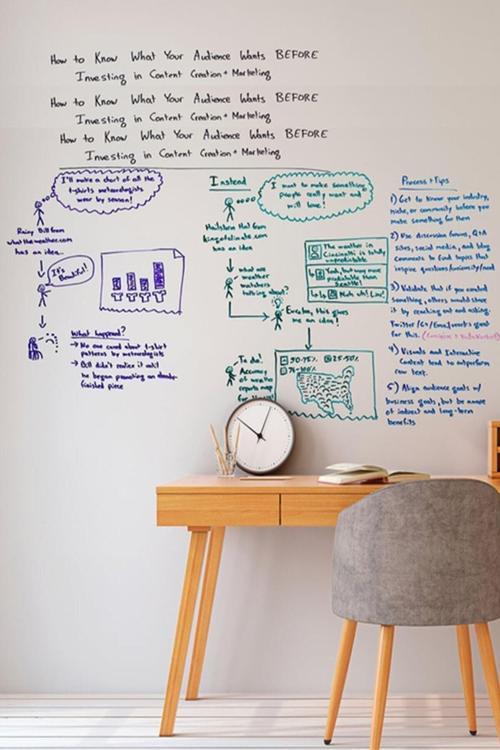 How to Know What Your Audience Wants BEFORE
Investing in Content Creation + Marketing
How to Know What Your Audience Wants BEFORE
Investing in Content Creation + Marketing
How to Know What Your Audience Wants BEFORE
Investing in Content Creation + Marketing
I'll make a chart of all the
t-shirts meteorologists
wear by season!
Rainy Bill from
whattheweather.com
has an idea...
It's
Beautiful!
What happened?
→ No one cared about t-shirt
patterns by meteorologists
→ Bill didn't realize it until
he began promoting an already-
finished piece
Instead
I want to make something
people really want and
will love!
Hailstorm Hal from
kingofclimate.com
has an idea
what are
weather
watchers
talking about?
The weather in
Cincinatti is totally
unpredictable
Yeah, but way more
predictable than
Seattle!
Nuh uh! Liar!
Eureka, this gives
me an idea!
To do:
Accuracy
of weather
reports map
50-75%
25-50%
76-100%
Process + Tips
1) Get to know your industry,
niche, or community before you
make something for them
2) Use discussion forums, Q+A
sites, social media, and blog
comments to find topics that
inspire questions/curiosity/need
3) Validate that if you created
something, others would share
it by reaching out and asking.
Twitter/G+/Email great
for this.
4) Visuals and Interactive
Content tend to outperform
raw text.
5) Align audience goals w/
business goals, but be aware
of indirect and long-term
benefits